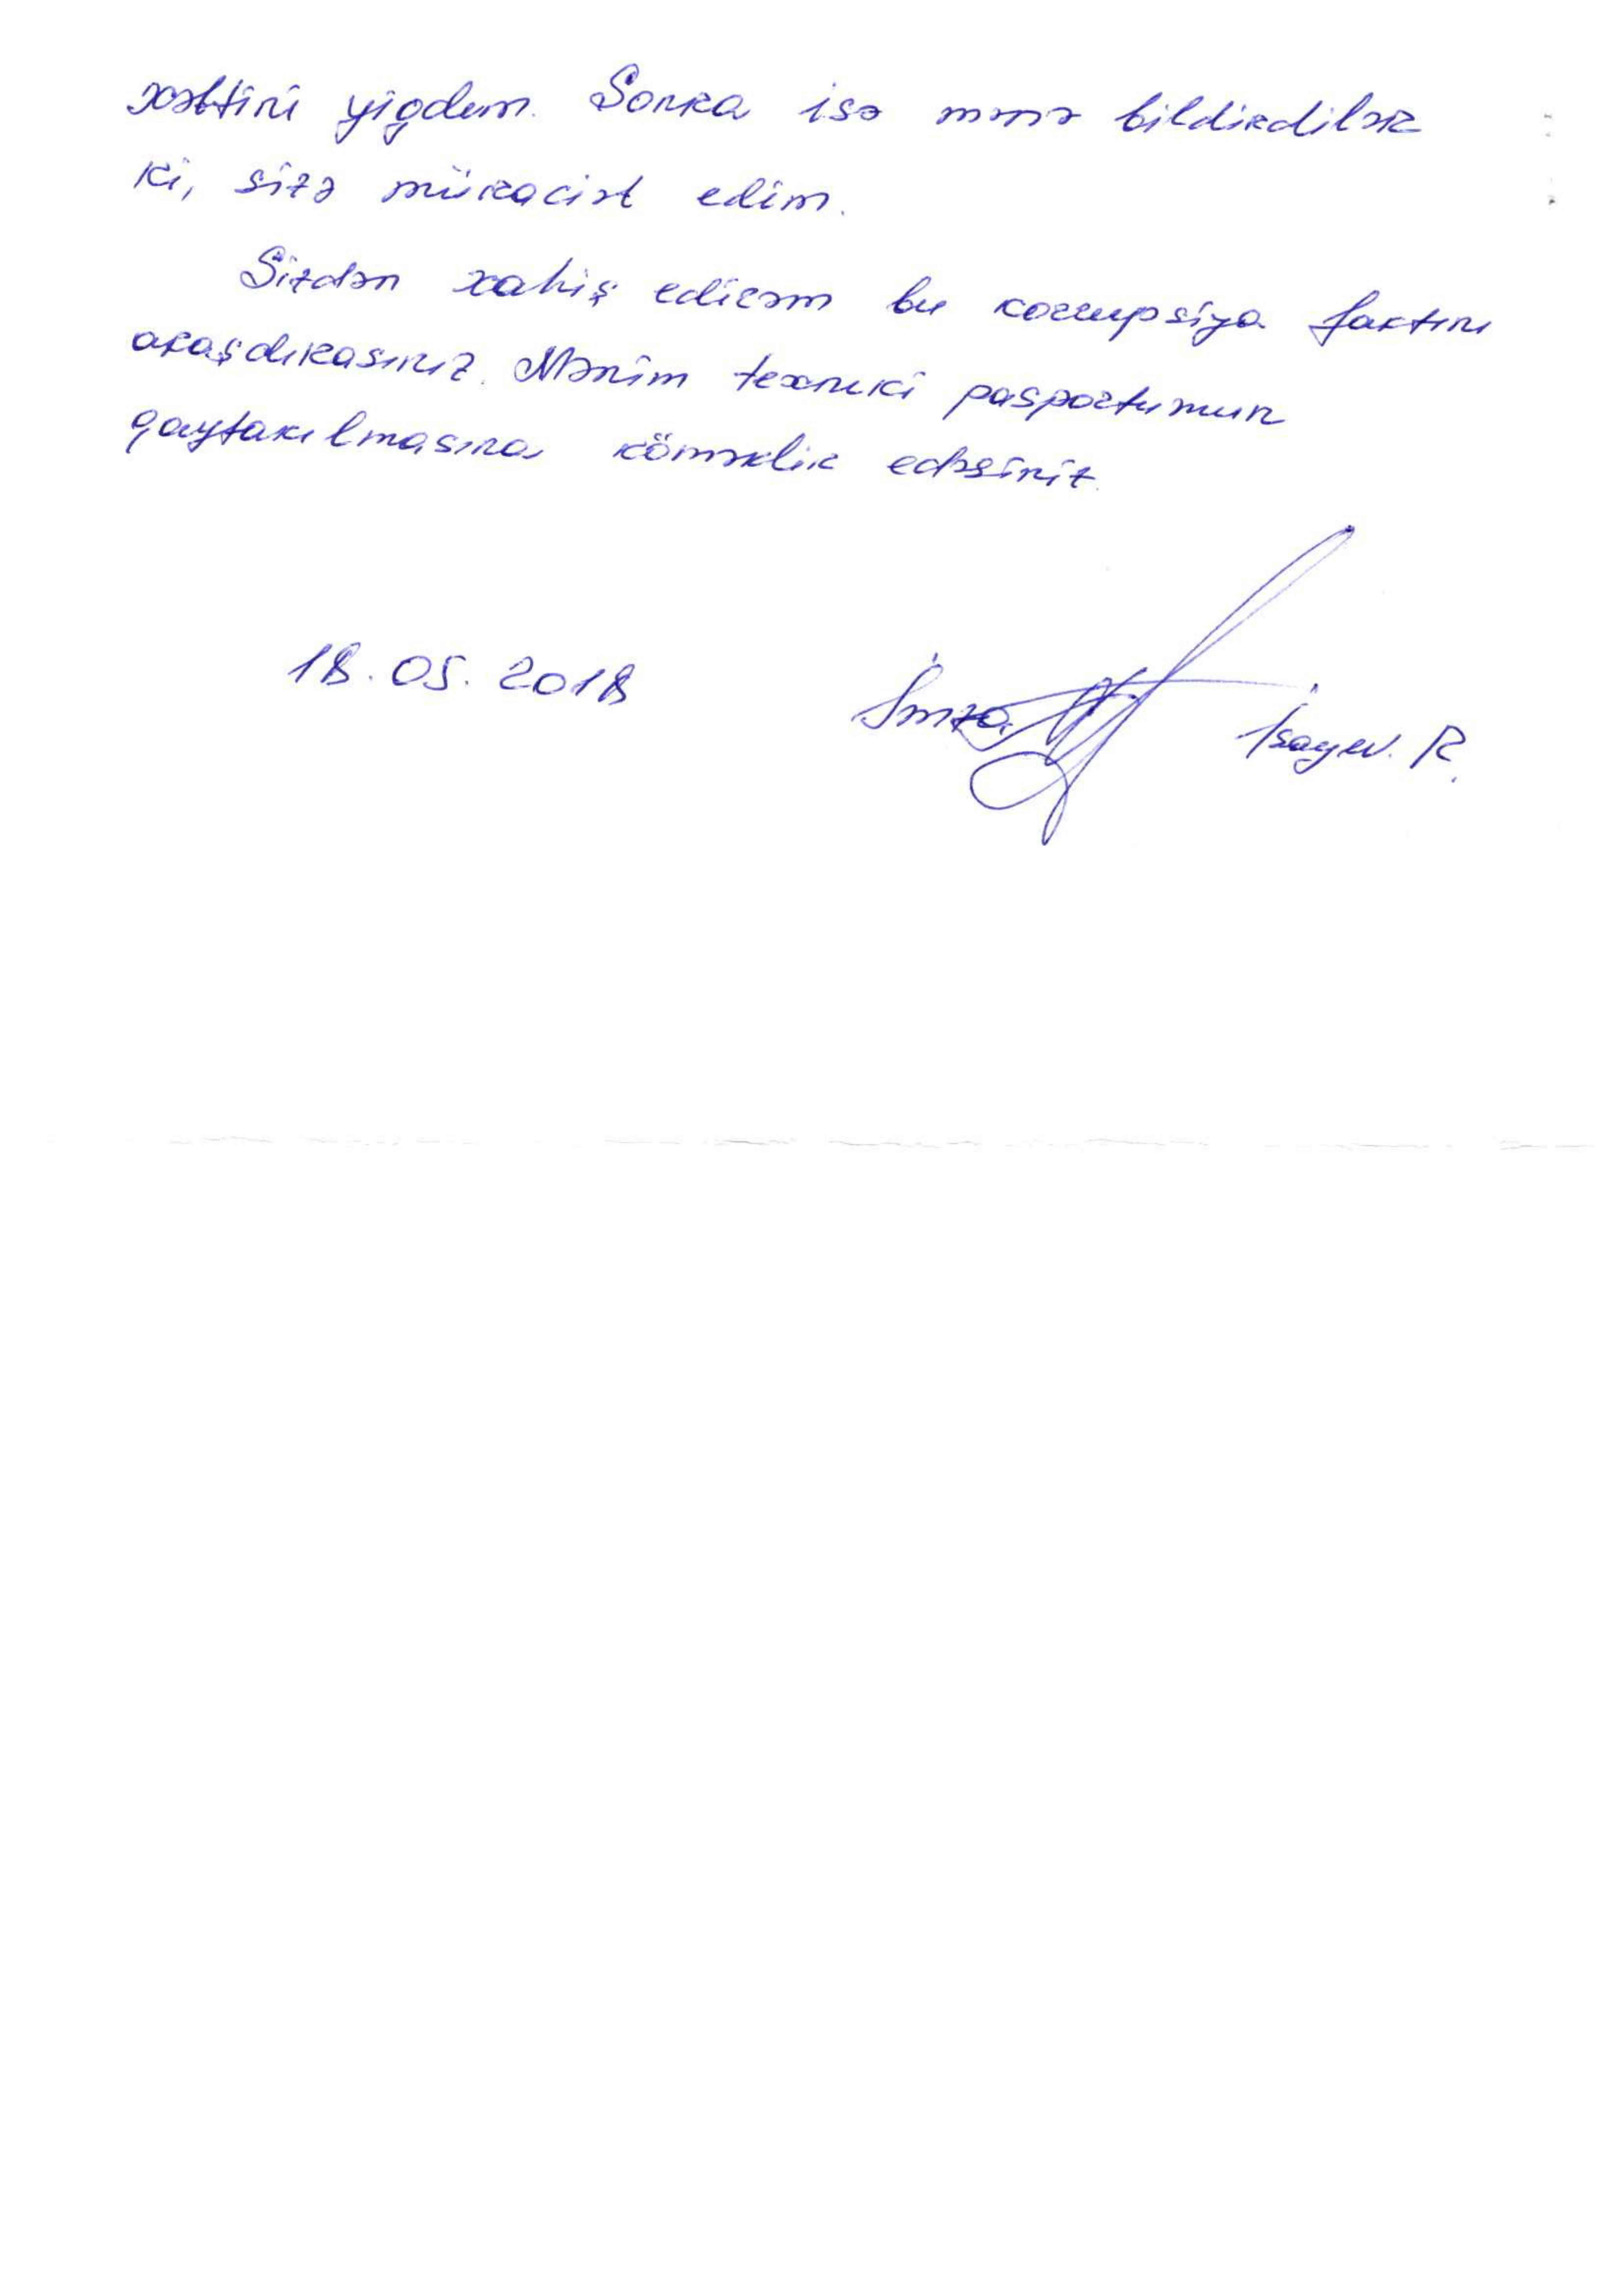 xəttini yigdım. Sonra isə mənə bildirdilər
ki, sizə müraciət edim.
Sizdən xahiş edirəm bu korrupsiya faktını
araşdırasınız. Mənim texniki pasportumun
qaytarılmasına köməklik edəsiniz.
18.05.2018 İmza. İsayev. R.